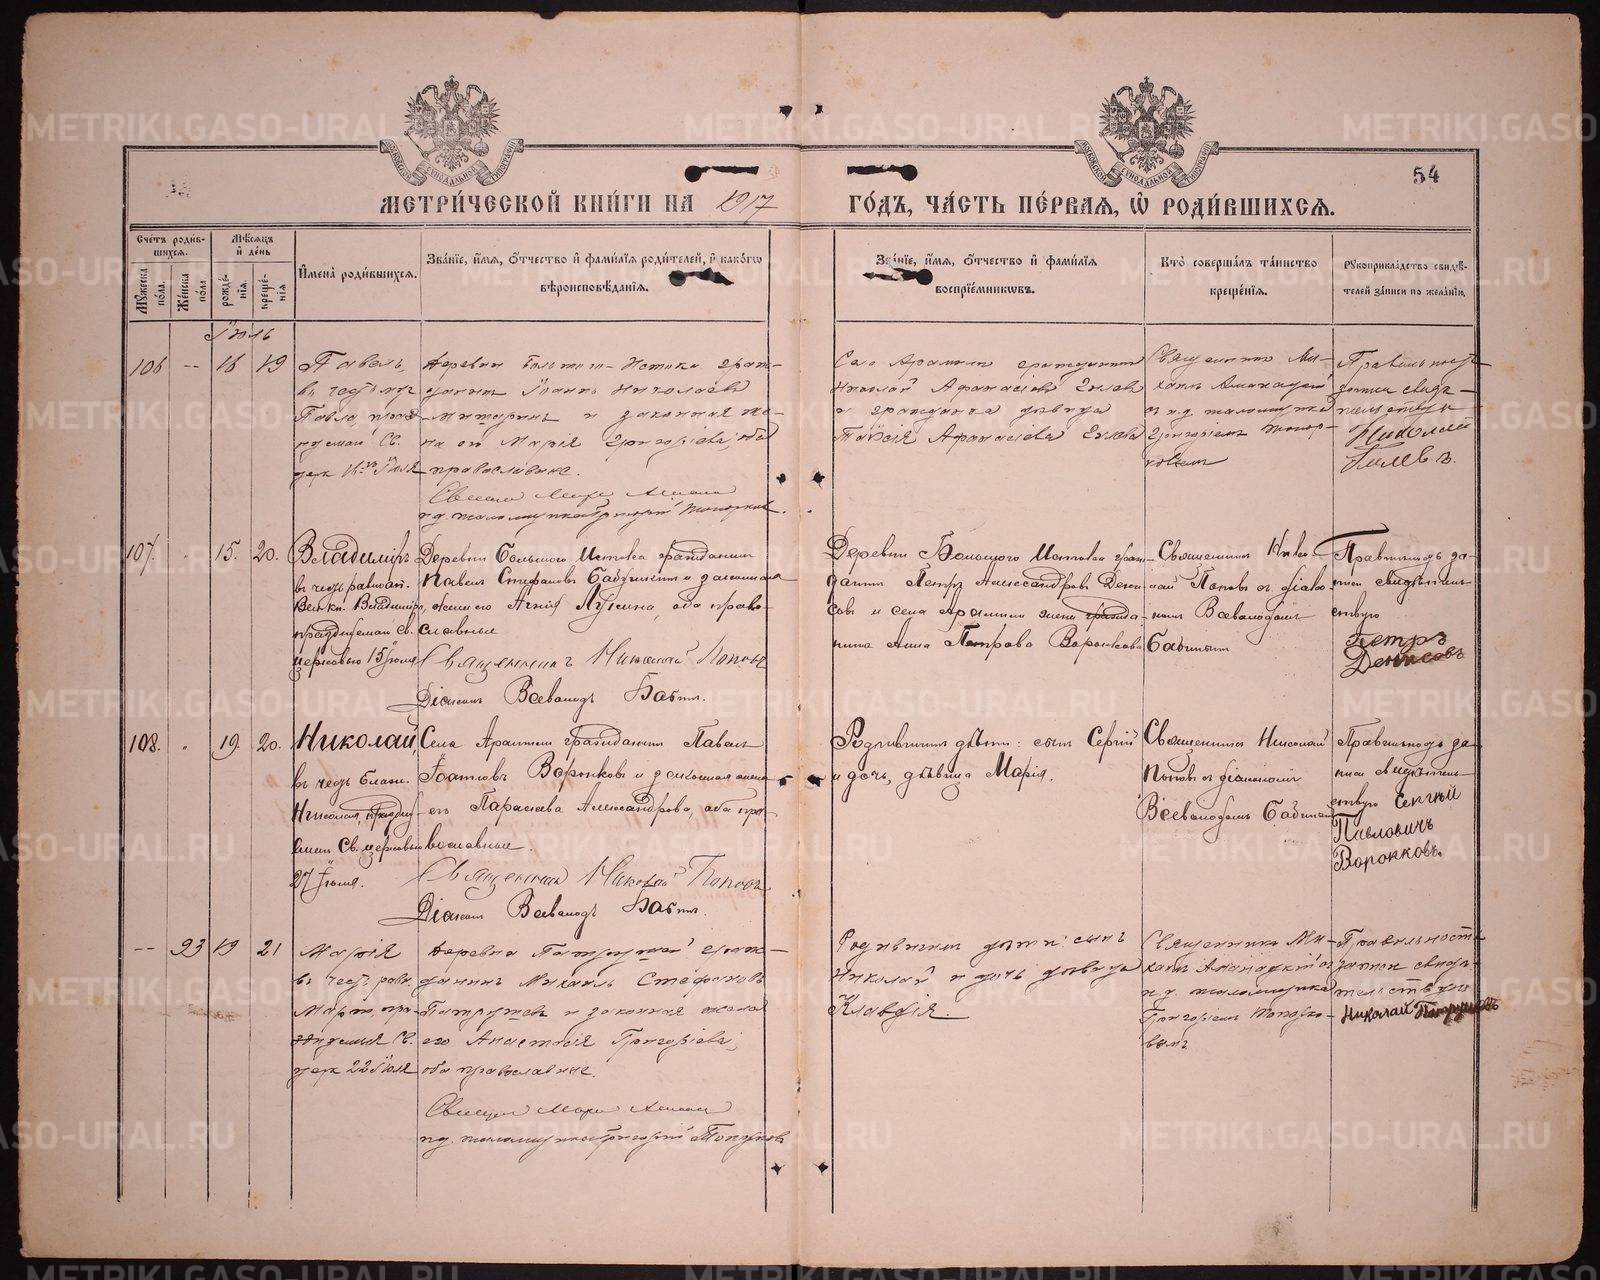 МЕТРИ́ЧЕСКОЙ КНИ́ГИ НА 1917 ГО́ДЪ, ЧА́СТЬ ПЕ́РВАЯ, Ѡ РОДИ́ВШИХСЯ.
54
Сче́тъ роди́в-
шихся.
Мꙋ́жеска по́ла.
Же́нска по́ла
Мѣ́сяцъ и҆ де́нь
рожде́-
нія.
креще́-
нія
И҆мена̀ роди́вшихся.
Зва́ніе, и҆́мя, ѻ҆́тчество и҆ фами́лія роди́телей, и҆ како́гѡ
вѣроисповѣ́данія.
Зва́ніе, и҆́мя, ѻ҆́тчество и҆ фами́лія
воспріе́мникѡвъ.
Кто̀ соверша́лъ та́инство
креще́нія.
Рꙋкоприкла́дство свидѣ́-
телей за́писи по жела́нію.
Іюль
106 -- 16 19
Павелъ
Павла, празд
Деревни Больш Истока граж-
данинъ Іоаннъ Николаевъ
и законная же-
на его Марія Григоріева, оба
православные.
Село Арамили гражданинъ
Николай Афанасіевъ
и гражданка дѣвица
Таисія Афанасіева
Священникъ Ми-
хаилъ
Григоріемъ Топор-
ковымъ
Правильность
записи свидѣ-
тельствую
Николай
107. " 15. 20.
Владиміръ
въ честь равноап.
Вел. кн. Владиміра,
празднуемаго св.
церковью 15 іюля
Деревни Большого Истока гражданинъ
Павелъ Стефановъ Бабушкинъ и законная
жена его Агнія Лукина, оба право-
славные
Священникъ Николай Поповъ
Діаконъ Всеволодъ Бабинъ.
Деревни Большого Истока граж-
данинъ Петръ Александровъ Дени-
совъ и села Арамили жена гражда-
нина Анна Петрова Воронкова
Священникъ Нико-
лай Поповъ съ діако-
номъ Всеволодомъ
Бабинымъ
Правильность за-
писи свидѣтель-
ствую
Петръ
Денисовъ
108. " 19 20.
Николай,
въ честь блажен.
Николая, празднуе-
маго Св. церковью
27 Іюля.
Села Арамили гражданинъ Павелъ
Воронковъ и законная жена
его Параскева Александрова, оба пра-
вославные.
Священникъ Николай Поповъ
Діаконъ Всеволодъ Бабинъ.
Родившимъ дѣти: сынъ Сергій
и дочь, дѣвица Марія.
Священникъ Николай
Поповъ съ діакономъ
Всеволодомъ Бабинымъ
Правильность за-
писи свидѣтель-
ствую Сергѣй
Павловичъ
Воронковъ.
-- 93 19 21
Марія
въ честь рав.
церк 22 Іюля
Деревни Патруши граж-
данинъ Михаилъ Стефановъ
Патрушевъ и законная жена
его Анастасія Григоріева,
оба православные.
Родившимъ дѣти: сынъ
Николай и дочь дѣвица
Клавдія.
Священникъ Ми-
хаилъ
Григоріемъ Топорко-
вымъ
Правильность
записи свидѣ-
тельствую
Николай Патрушевъ
METRIKI.GASO-URAL.RU